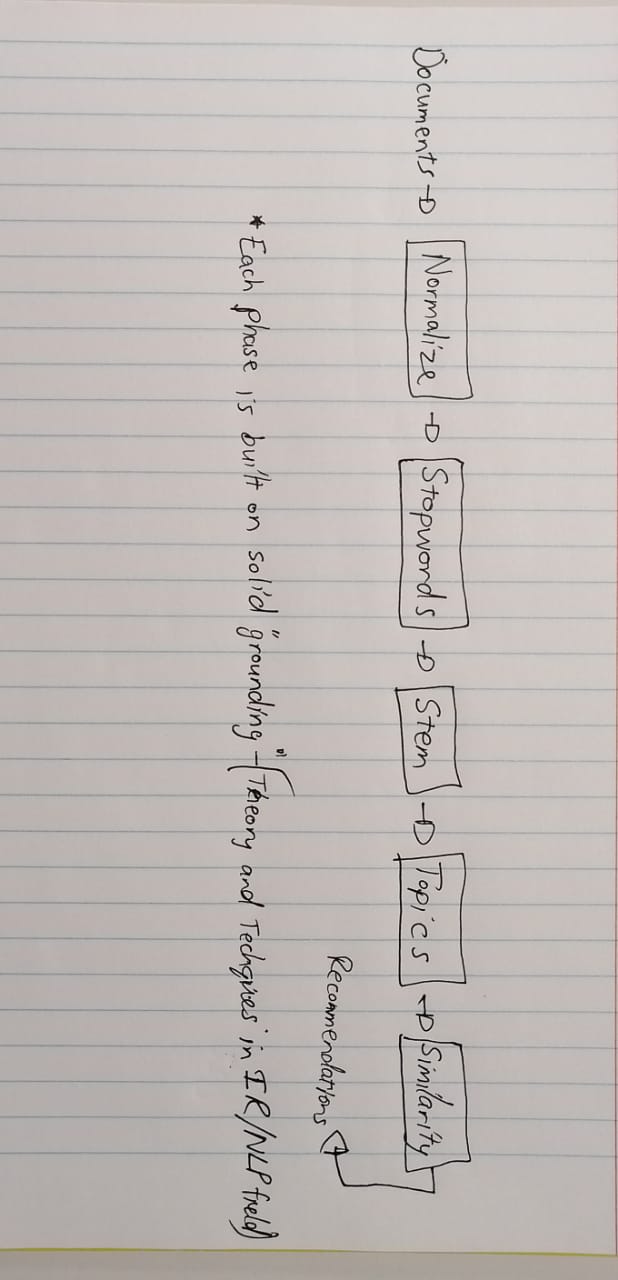 Documents → Normalize → Stopwords → Stem → Topics → Similarity
Recommendations
* Each phase is built on solid "grounding" - (Theory and Techqiues in IR/NLP field)